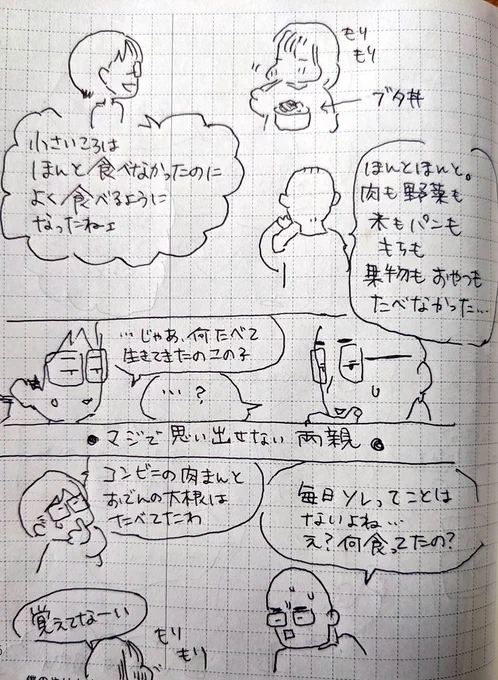 もり
もり
ブタ丼
小さいころは
ほんと食べなかったのに
よく食べるように
なったねェ
ほんとほんと。
肉も野菜も
米もパンも
もちも
果物もおやつも
たべなかった…
…じゃあ、何たべて
生きてきたのこの子
…?
•マジで思い出せない両親•
コンビニの肉まんと
おでんの大根は
たべてたわ
毎日ソレってことは
ないよね…
え?何食ってたの?
覚えてなーい
もり
もり